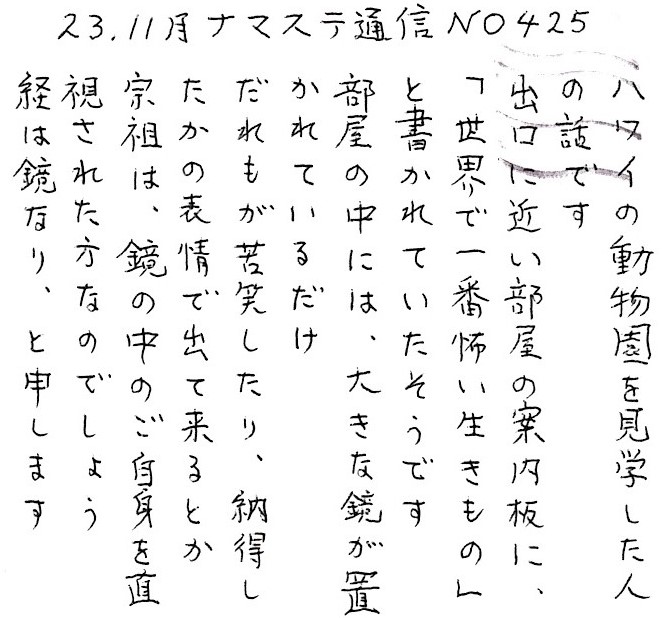 23.11月ナマステ通信NO425
ハワイの動物園を見学した人
の話です
出口に近い部屋の案内板に、
「世界で一番怖い生きもの」
と書かれていたそうです
部屋の中には、大きな鏡が置
かれているだけ
だれもが苦笑したり、納得し
たかの表情で出て来るとか
宗祖は、鏡の中のご自身を直
視された方なのでしょう
経は鏡なり、と申します